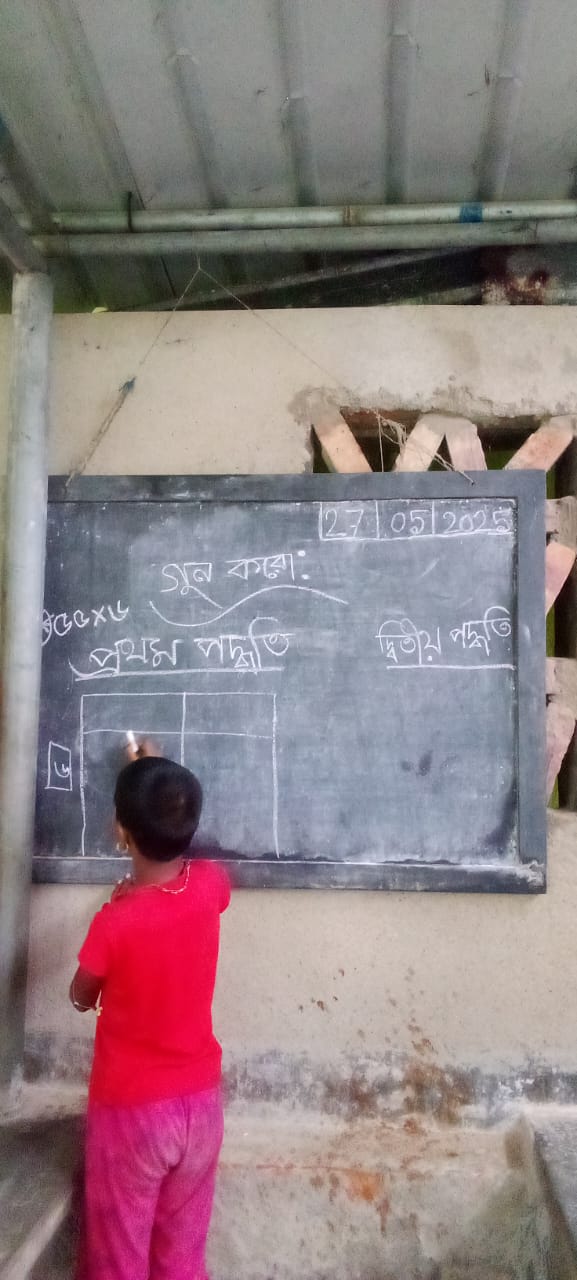 27 05 2025
গুন করো:
৫৫×৬
প্রথম পদ্ধতি
দ্বিতীয় পদ্ধতি
৬